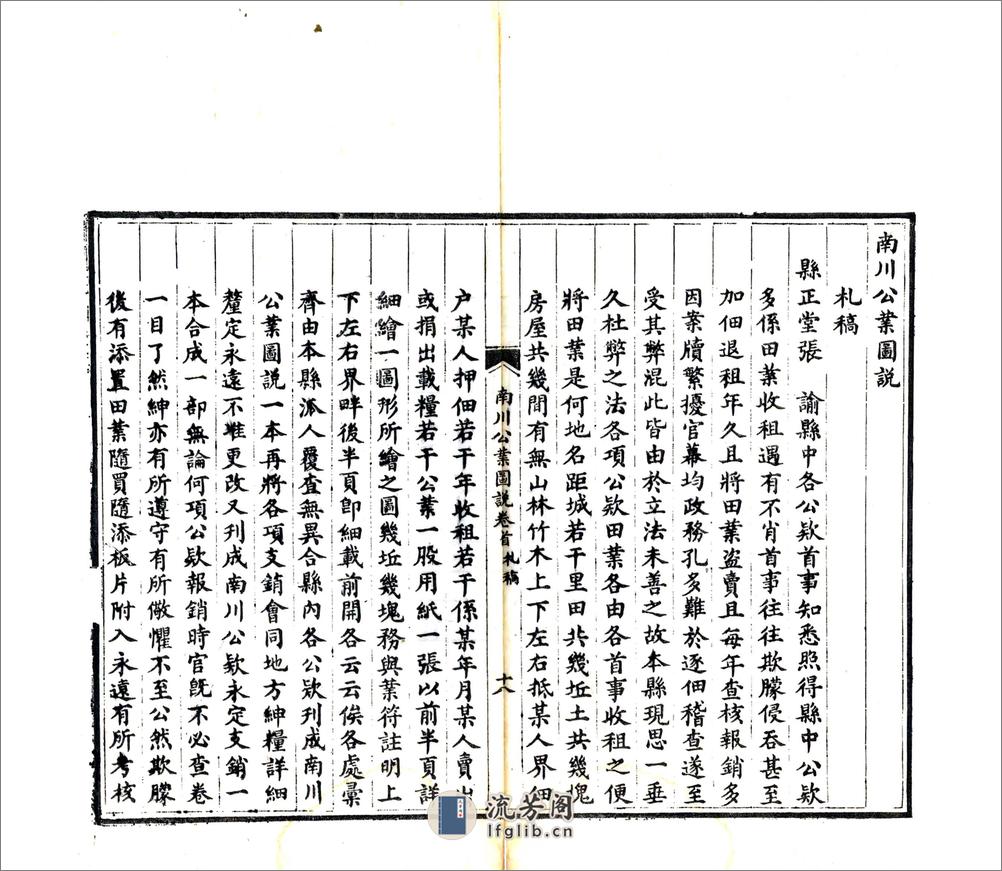 南川公業圖説
札稿
縣正堂張　諭縣中各公欵首事知悉照得縣中公欵
多係田業收租遇有不肖首事往往欺朦侵吞甚至
加佃退租年久且將田業盜賣且每年查核報銷多
因案牘繁擾官幕均政務孔多難於逐佃稽查遂至
受其弊混此皆由於立法未善之故本縣現思一垂
久杜弊之法各項公欵田業各由各首事收租之便
將田業是何地名距城若干里田共幾坵土共幾塊
房屋共幾間有無山林竹木上下左右抵某人界佃
南川公業圖説卷首 札稿 十八
户某人押佃若干年收租若干係某年月某人賣出
或捐出載糧若干公業一股用紙一張以前半頁詳
細繪一圖形所繪之圖幾坵幾塊務與業符註明上
下左右界畔後半頁卽細載前開各云云俟各處彙
齊由本縣派人覆查無異合縣內各公欵刊成南川
公業圖説一本再將各項支銷會同地方紳糧詳細
釐定永遠不准更改又刊成南川公欵永定支銷一
本合成一部無論何項公欵報銷時官旣不必查卷
一目了然紳亦有所遵守有所儆懼不至公然欺朦
後有添置田業隨買隨添板片附入永遠有所考核
流芳阁
lfglib.cn